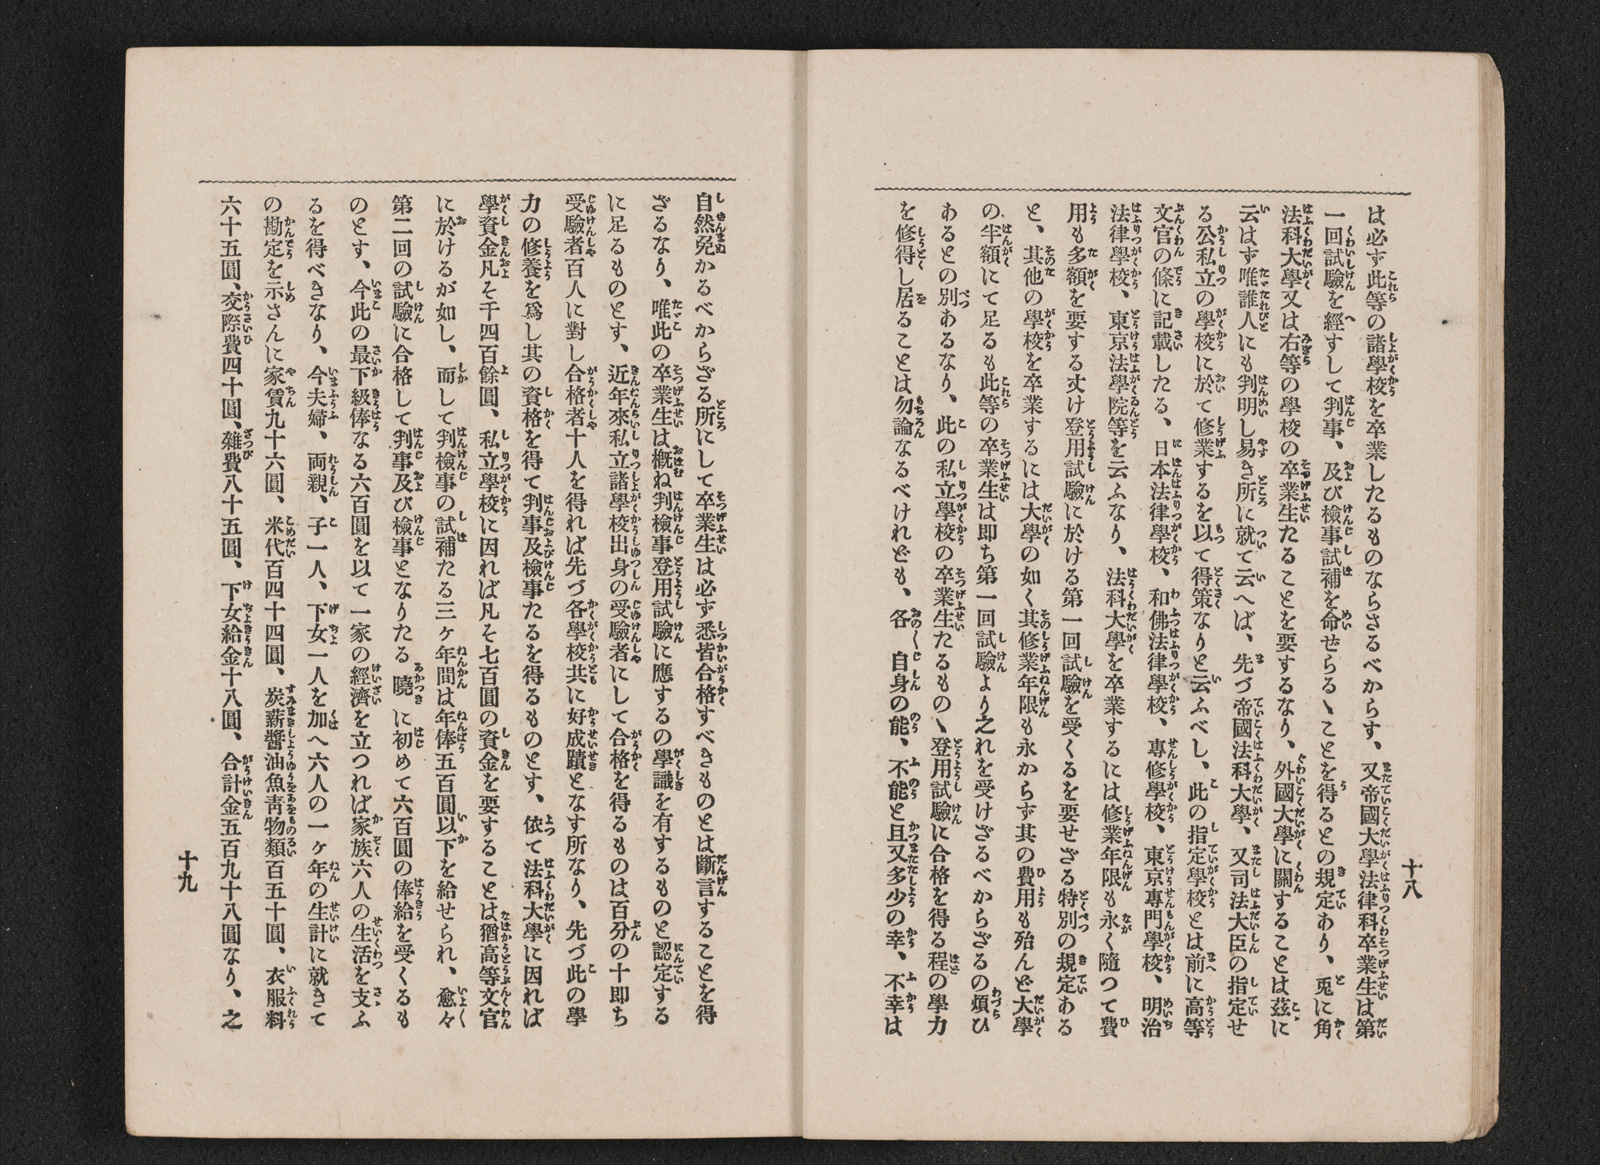 は必ず此等の諸學校を卒業したるものならさるべからす、又帝國大學法律科卒業生は第
一回試驗を經すして判事、及び檢事試補を命せらるゝことを得るとの規定あり、兎に角
法科大學又は右等の學校の卒業生たることを要するなり、外國大學に關することは茲に
云はず唯誰人にも判明し易き所に就て云へば、先づ帝國法科大學、又司法大臣の指定せ
る公私立の學校に於て修業するを以て得策なりと云ふべし、此の指定學校とは前に高等
文官の條に記載したる、日本法律學校、和佛法律學校、專修學校、東京專門學校、明治
法律學校、東京法學院等を云ふなり、法科大學を卒業するには修業年限も永く隨つて費
用も多額を要する丈け登用試驗に於ける第一回試驗を受くるを要せざる特別の規定ある
と、其他の學校を卒業するには大學の如く其修業年限も永からず其の費用も殆んど大學
の半額にて足るも此等の卒業生は即ち第一回試驗より之れを受けざるべからざるの煩ひ
あるとの別あるなり、此の私立學校の卒業生たるもの、登用試驗に合格を得る程の學力
を修得し居ることは勿論なるべけれども、各〱自身の能、不能と且又多少の幸、不幸は
十八
自然免かるべからざる所にして卒業生は必ず悉皆合格すべきものとは斷言することを得
ざるなり、唯此の卒業生は概ね判檢事登用試驗に應するの學識を有するものと認定する
に足るものとす、近年來私立諸學校出身の受驗者にして合格を得るものは百分の十即ち
受驗者百人に對し合格者十人を得れば先づ各學校共に好成蹟となす所なり、先づ此の學
力の修養を爲し其の資格を得て判事及檢事たるを得るものとす、依て法科大學に因れば
學資金凡そ千四百餘圓、私立學校に因れば凡そ七百圓の資金を要することは猶高等文官
に於けるが如し、而して判檢事の試補たる三ヶ年間は年俸五百圓以下を給せられ、愈々
第二回の試驗に合格して判事及び檢事となりたる曉に初めて六百圓の俸給を受くるも
のとす、今此の最下級俸なる六百圓を以て一家の經濟を立つれば家族六人の生活を支ふ
るを得べきなり、今夫婦、両親、子一人、下女一人を加へ六人の一ヶ年の生計に就きて
の勘定を示さんに家賃九十六圓、米代百四十四圓、炭薪醬油魚靑物類百五十圓、衣服料
六十五圓、交際費四十圓、雜費八十五圓、下女給金十八圓、合計金五百九十八圓なり、之
十九